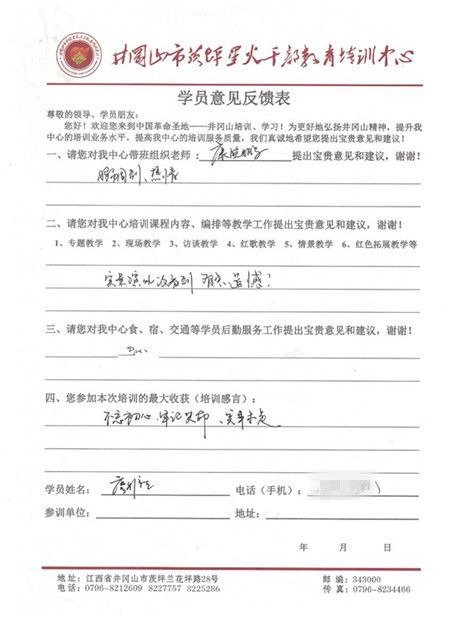 井冈山市茨坪星火干部教育培训中心
学员意见反馈表
尊敬的领导、学员朋友：
您好！欢迎您来到中国革命圣地——井冈山培训、学习！为更好地弘扬井冈山精神，提升我
中心的培训业务水平，提高我中心的培训服务质量，我们真诚地希望您提出宝贵意见和建议！
一、请您对我中心带班组织老师： 提出宝贵意见和建议，谢谢！
服务周到、热情
二、请您对我中心培训课程内容、编排等教学工作提出宝贵意见和建议，谢谢！
1、专题教学 2、现场教学 3、访谈教学 4、红歌教学 5、情景教学 6、红色拓展教学等
实景演出没看到 有点遗憾！
三、请您对我中心食、宿、交通等学员后勤服务工作提出宝贵意见和建议，谢谢！
四、您参加本次培训的最大收获（培训感言）：
不忘初心、牢记使命、
学员姓名： 电话（手机）：
参训单位： 地址：
年 月 日
地址：江西省井冈山市茨坪兰花坪路28号 邮编：343000
电话：0796-8212609 8227757 8225286 传真：0796-8234466